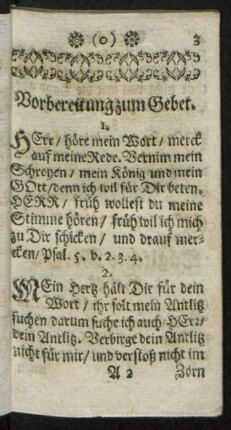 (0) 3
Vorbereitung zum Gebet.
1.
HErr / höre mein Wort / merck
auf meine Rede. Vernim mein
Schreyen / mein König und mein
GOtt / denn ich wil für Dir beten.
HERR / früh wollest du meine
Stimme hören / früh wil ich mich
zu Dir schicken / und drauf mer-
cken / Psal. 5. v. 2. 3. 4.
2.
MEin Hertz hält Dir für dein
Wort / ihr solt mein Antlitz
suchen darum suche ich auch HErr /
dein Antlitz. Verbirge dein Antlitz
nicht für mir / und verstoß nicht im
A 2 Zorn